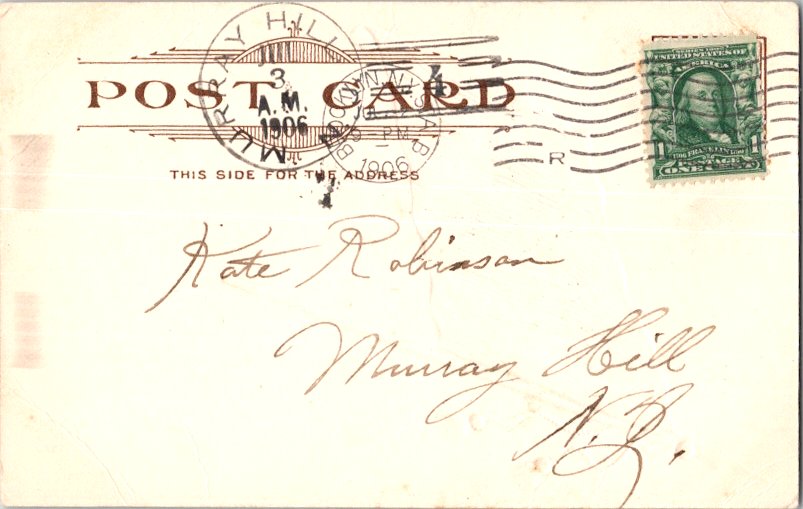 MURRAY HILL N.J.
3
A.M.
1906
BROOKLYN, N.Y. STA. B
4
PM
1906
R
UNITED STATES OF
AMERICA
1706 FRANKLIN 1790
1 POSTAGE 1
ONE CENT
POST CARD
THIS SIDE FOR THE ADDRESS
Kate Robinson
Murray Hill
N.J.